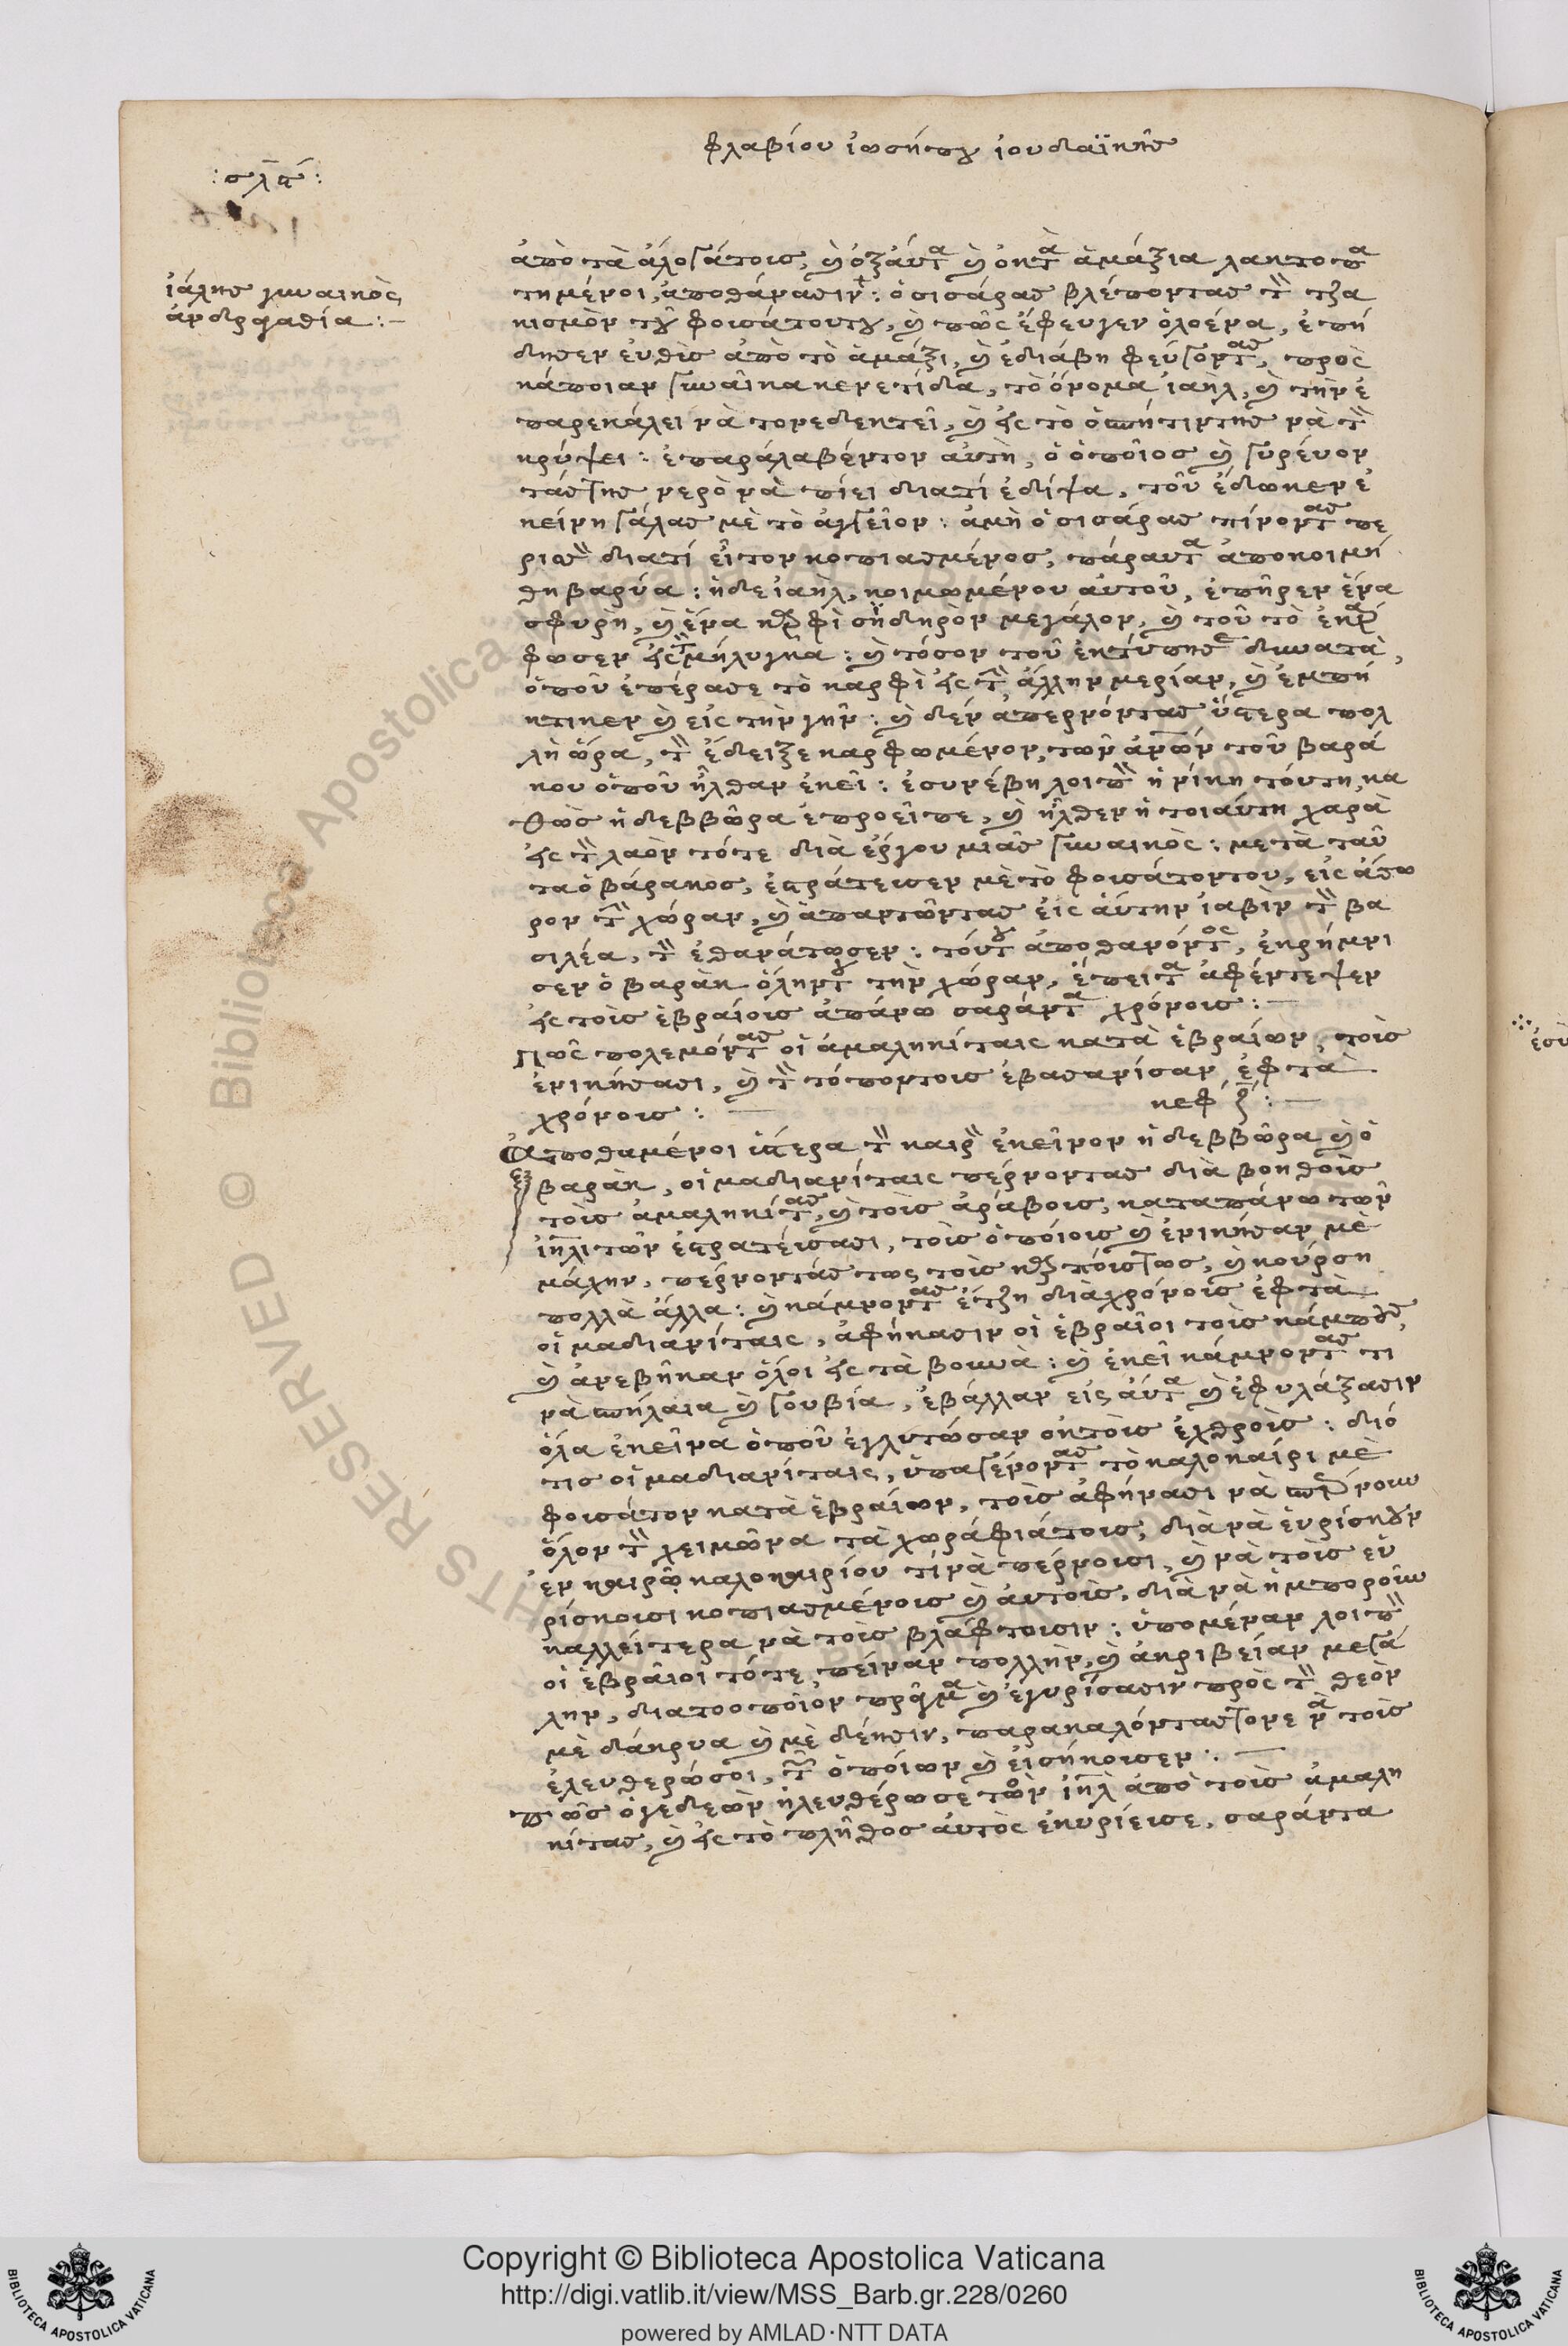 φλαβίου ἰωσήπου ἰουδαϊκῆς
: σλς :
ἰάλης γυναικὸς
ἀνδραγαθία : –
ἀπὸ τὰ ἄλογάτοις, καὶ ὀξ αὐτὰ καὶ ὀκ τὰ ἁμάξια λακτοπα
τημένοι, ἀποθάνασιν : ὁ σισάρας βλέποντας τὸν τζα
κισμὸν τοῦ φουσάτου του, καὶ πῶς ἔφευγεν ὁλοένα, ἐπή
δησεν εὐθὶς ἀπὸ τὸ ἁμάξι, καὶ ἐδιάβη φεύγοντας, πρὸς
κάποιαν γυναῖκα κενετίδα, τὸ ὄνομα ἰαὴλ, καὶ τὴν ἐ
παρεκάλει νὰ τονε δεκτεῖ, καὶ εἰς τὸ ὁσπήτιν της νὰ τὸν
κρύψει : ἐπαράλαβέν τον αὐτὴ, ὁ ὁποῖος καὶ γυρένον
τάς της νερὸ νὰ πίει διατί ἐδίψα, τοῦ ἔδωκεν ἐ
κείνη γάλας μὲ τὸ ἀγγεῖον : ἀμὴ ὁ σισάρας πίνοντας πε
ρισὸν διατί εἶτον κοπιασμένος, πάραυτα ἀποκοιμή
θη βαρύα : ἡ δὲ ἰαὴλ, κοιμωμένου αὐτοῦ, ἐπῆρεν ἕνα
σφυρὴ, καὶ ἕνα καρφὶ σηδηρὸν μεγάλον, καὶ τοῦ τὸ ἐκάρ
φωσεν εἰς τὸ μήλυγκα : καὶ τόσον τοῦ ἐκτύπησε δυνατὰ,
ὁποῦ ἐπέρασε τὸ καρφὶ εἰς τὴν ἄλλην μερίαν, καὶ ἐμπή
κτικεν καὶ εἰς τὴν γῆν : καὶ δὲν ἀπερνόντας ὕστερα πολ
λὴ ὥρα, τὸν ἔδειξε καρφωμένον, τῶν ἀνῶν τοῦ βαρά
κου ὁποῦ ἦλθαν ἐκεῖ : ἐσυνέβη λοιπὸν ἡ νίκη τούτη, κα
θὼς ἡ δεββῶρα ἐπροεῖπε, καὶ ἦλθεν ἡ τοιαύτη χαρὰ
εἰς τὸν λαὸν τότε διὰ ἔργου μιᾶς γυναικὸς : μετὰ ταῦ
τα ὁ βάρακος, ἐστράτεισεν μὲ τὸ φουσάτον του, εἰς ἄσω
ρον τὴν χώραν, καὶ ἀπαντῶντας εἰς αὐτην ἰαβὶν τὸν βα
σιλέα, τὸν ἐθανάτωσεν : τούτου ἀποθανόντος, ἐκρήμνι
σεν ὁ βαρὰκ ὅλην του τὴν χώραν, ἔπειτα ἀφέντεψεν
εἰς τοὶς ἑβραίοις ἀπάνω σαράντα χρόνοις : –
Πῶς πολεμόντας οἱ ἀμαληκίταις κατὰ ἑβραίων, τοὶς
ἐνικήσασι, καὶ τὸν τόπον τοις ἐβασανίσαν ἑφτὰ
χρόνοις : – κεφ ζ : –
Ἀποθαμένοι ὕστερα τὸν καιρὸν ἐκεῖνον ἡ δεββῶρα καὶ ὁ
βαρὰκ, οἱ μαδιανίταις πέρνοντας διὰ βοηθοὶς
τοὶς ἀμαληκίτας, καὶ τοὶς ἀράβοις, καταπάνω τῶν
ἰηλιτῶν ἐστρατείσασι, τοὶς ὁποίοις καὶ ἐνικήσαν μὲ
μάχην, πέρνοντάς τως τοὶς καρπόις τως, καὶ κούρση
πολλὰ ἄλλα : καὶ κάμνοντας ἔτζη διὰ χρόνοις ἑφτὰ
οἱ μαδιανίταις, ἀφήκασιν οἱ ἑβραῖοι τοὶς κάμπους,
καὶ ἀνεβῆκαν ὅλοι εἰς τὰ βουνὰ : καὶ ἐκεῖ κάμνοντας τι
νὰ σπήλαια καὶ γουβία, ἐβάλλαν εἰς αὐτὰ καὶ ἐφυλάξασιν
ὅλα ἐκεῖνα ὁποῦ ἐγλυτώσαν ὀκ τοὶς ἐχθροὶς : διό
τις οἱ μαδιανίταις, ὑπαγένοντας τὸ καλοκαίρι μὲ
φουσάτον κατὰ ἑβραίων, τοὶς ἀφήνασι νὰ σπέρνουν
ὅλον τὸν χειμῶνα τὰ χωράφιάτοις, διὰ νὰ εὑρίσκουν
ἐν καιρῷ καλοκαιρίου τί νὰ πέρνουσι, καὶ νὰ τοὶς εὑ
ρίσκουσι κοπιασμένοις καὶ αὐτοὶς, διὰ νὰ ἠμποροῦν
καλλείτερα νὰ τοὶς βλάφτουσιν : ὑπομέναν λοιπὸν
οἱ ἑβραῖοι τότε, πείναν πολλὴν, καὶ ἀκριβείαν μεγά
λην, διατοοποῖον πρᾶγμα καὶ ἐγυρίσασιν πρὸς τὸν θεὸν
μὲ δάκρυα καὶ μὲ δέησιν, παρακαλόντας τονε νὰ τοὶς
ἐλευθερώσοι, τῶν ὁποίων καὶ εἰσήκουσεν : –
πῶς ὁ γεδεὼν ἠλευθέρωσε τὸν ἰηλ ἀπὸ τοὶς ἀμαλη
κίτας, καὶ εἰς τὸ πλῆθος αὐτὸς ἐκυρίεισε, σαράντα
Copyright © Biblioteca Apostolica Vaticana
http://digi.vatlib.it/view/MSS_Barb.gr.228/0260
powered by AMLAD·NTT DATA